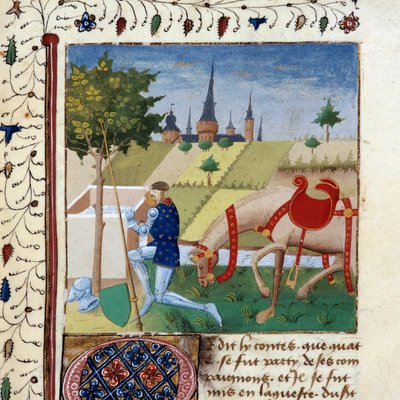 dit ly contes. que quat
il se fut party de ses com
paignons. et il se fut
mis en la queste. dust